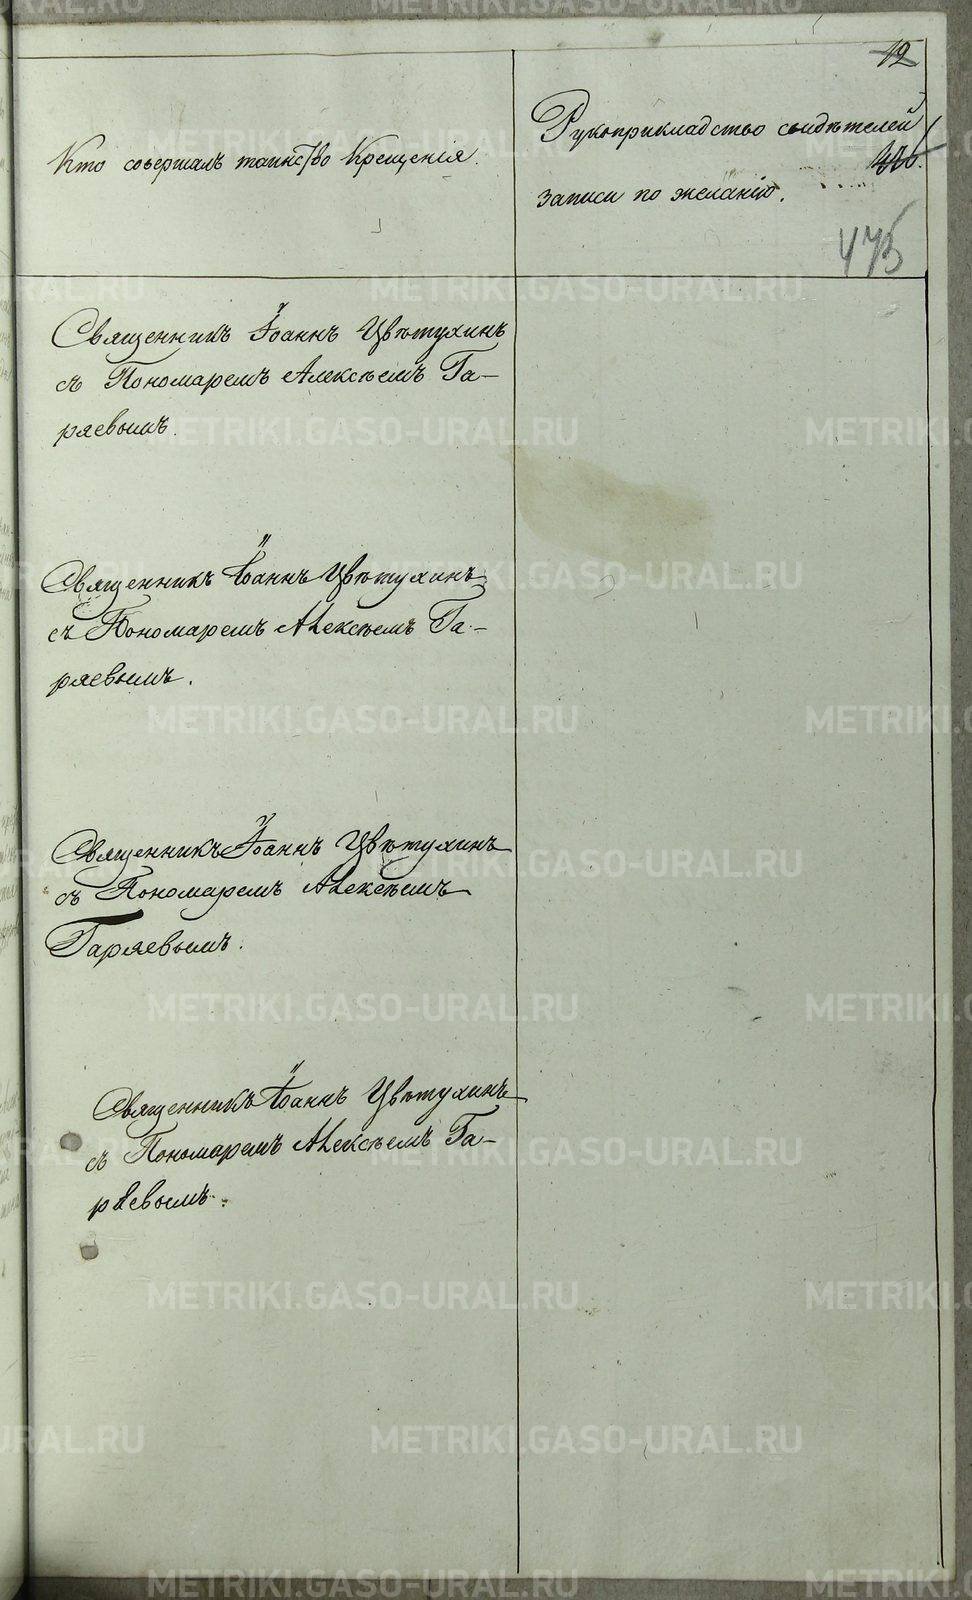 12
Кто совершалъ таинство Крещенія.
Рукоприкладство свидѣтелей
записи по желанію.
475
Священникъ Іоаннъ Цвѣтухинъ
съ Пономаремъ Алексѣемъ Га-
ряевымъ.
Священникъ Іоаннъ Цвѣтухинъ
съ Пономаремъ Алексѣемъ Га-
ряевымъ.
Священникъ Іоаннъ Цвѣтухинъ
съ Пономаремъ Алексѣемъ
Гаряевымъ.
Священникъ Іоаннъ Цвѣтухинъ
съ Пономаремъ Алексѣемъ Га-
ряевымъ.
METRIKI.GASO-URAL.RU